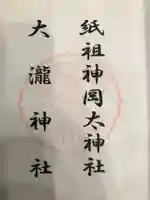 紙祖神岡太神社
大瀧神社